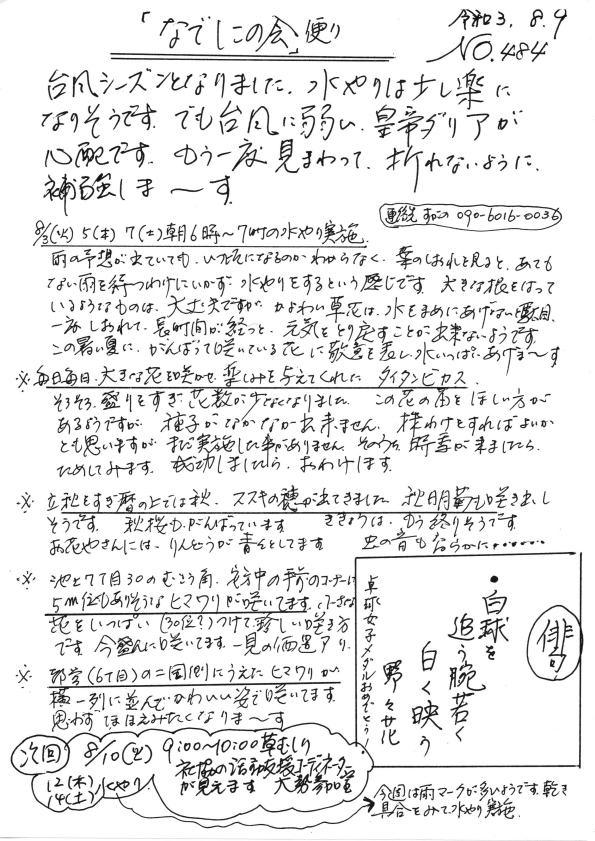 「なでしこの会」便り
令和3. 8. 9
NO. 484
台風シーズンとなりました. 水やりは少し楽に
なりそうです. でも台風に弱い. 皇帝ダリアが
心配です. もう一度見まわって. 折れないように.
補強しま〜す.
090-6016-0036
8/3(火) 5(木) 7(土)朝6時〜7時の水やり実施.
雨の予想が出ていても. いつ本になるのかわからなく. 葉のしおれを見ると、あても
ない雨を待つわけにいかず 水やりをするという感じです. 大きな根をはって
いるようなものは. 大丈夫ですが. かよわい草花は. 水をまめにあげないと駄目.
一度しおれて. 長時間が経つと、元気をとり戻すことが出来ないようです.
この暑い夏に. がんばって咲いている花に敬意を表し水いっぱいあげま〜す
※毎日毎日. 大きな花を咲かせ. 楽しみを与えてくれた タイタンビカス.
そろそろ. 盛りをすぎ 花数が少なくなりました. この花の苗をほしい方が
あるようですが 種子がなかなか出来ません. 株わけをすればよいか
とも思いますが まだ実施した事がありません. そのうち. 時季が来ましたら.
ためしてみます. 成功しましたら. おわけします.
※ 立秋をすぎ暦の上では秋. ススキの穂が出てきました. 秋明菊も咲き出し
そうです. 秋桜も. がんばっています ききょうは. もう終りそうです.
お花やさんには、りんどうが青々としてます 虫の音も高らかに‥‥‥
※ 池上7丁目30のむこう角. 手前のコーナーに
5m位もありそうなヒマワリが咲いてます.
花をいっぱい(30位?)つけて. 珍しい咲き方
です 今盛んに咲いてます. 一見の価値アリ.
※ (6丁目)の二国側にうえたヒマワリが
横一列に並んでかわいい姿で咲いてます.
思わず ほほえみたくなりま〜す
俳句
・白球を
追う腕若く
白く映う
野々花
卓球女子メダルおめでとう!
次回 8/10(火) 9:00〜10:00草むしり
社協の活動支援コーディネーター
が見えます 大勢参加を
12(木)
14(土) 水やり
今回は雨マークが多いようです. 乾き
具合をみて. 水やり実施.